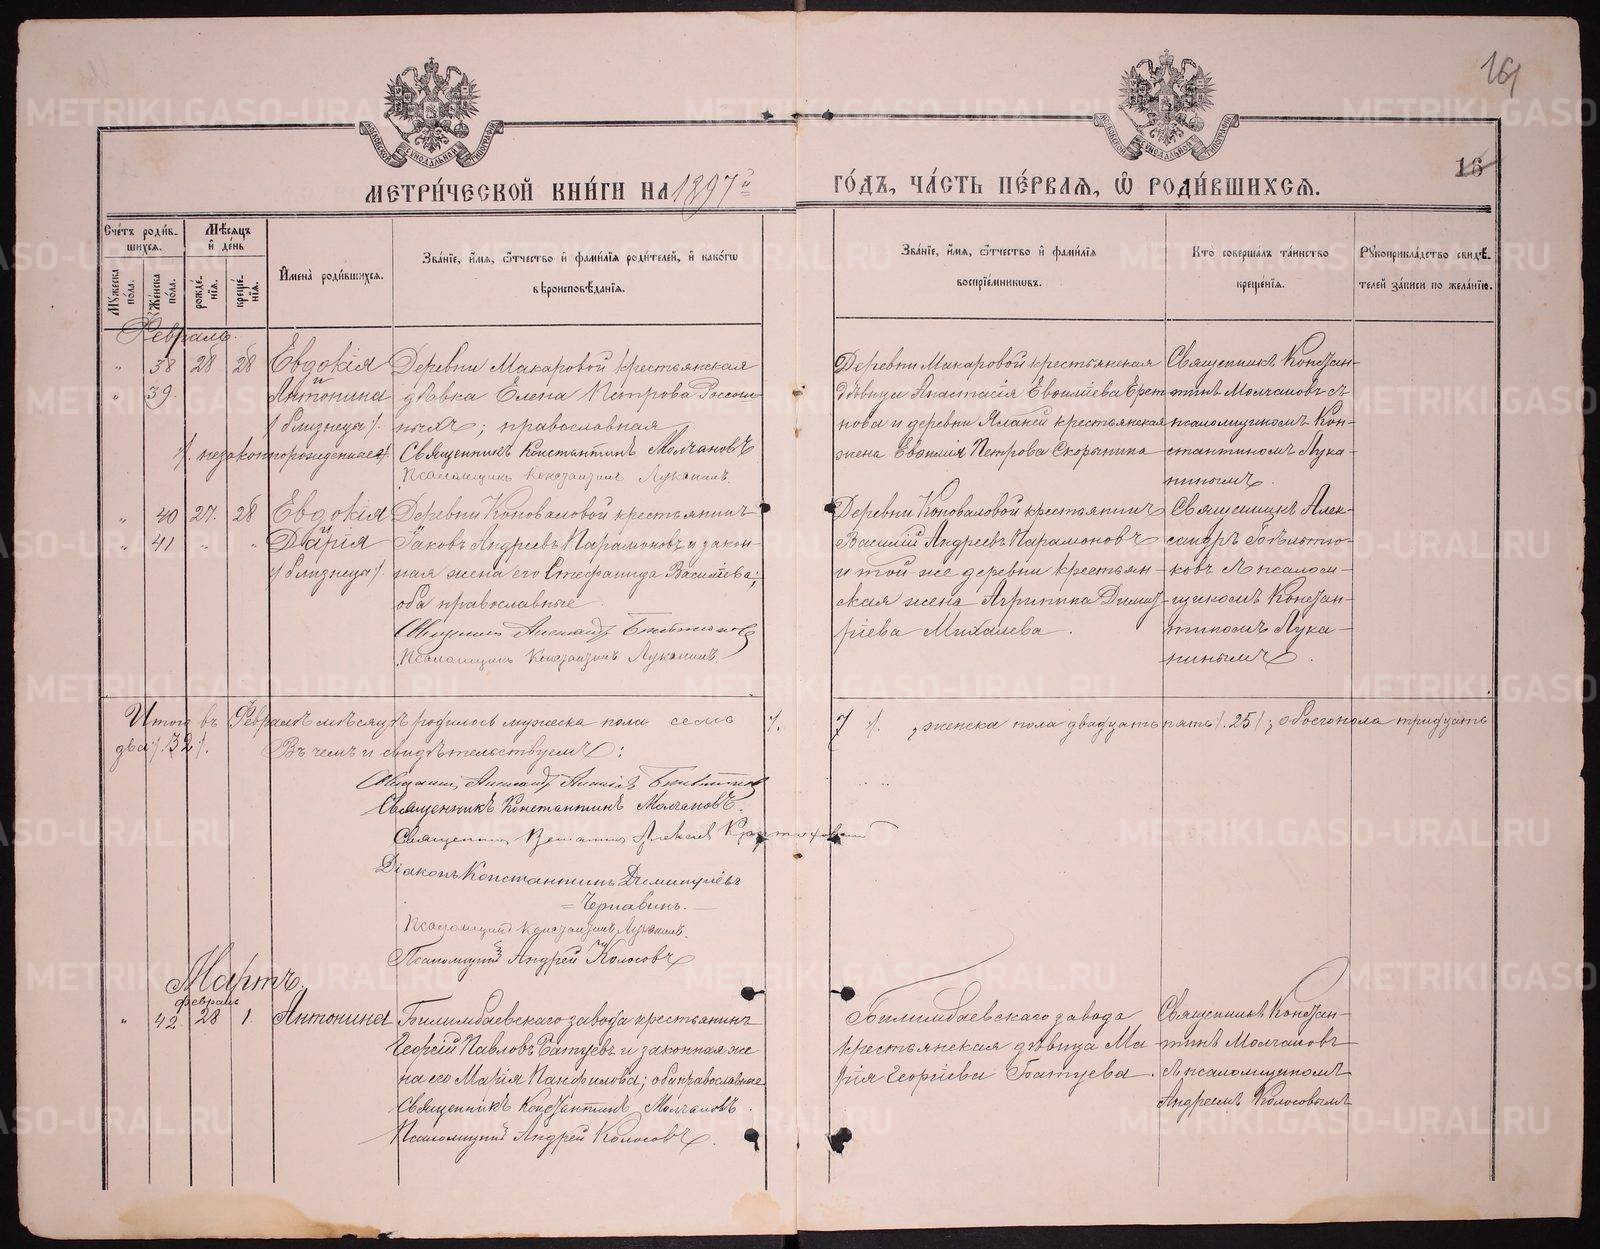 161
16
МЕТРИ́ЧЕСКОЙ КНИ́ГИ НА 1897й ГО́ДЪ, ЧА́СТЬ ПЕ́РВАЯ, Ѿ РОДИ́ВШИХСЯ.
Сче́тъ роди́в-шихся.
Му́жеска по́ла.
Же́нска по́ла.
Мѣ́сяцъ и де́нь
рожде́-нїя.
креще́-нїя.
Имена̀ роди́вшихся.
Зва́нїе, и́мя, ѻ́тчество и фами́лїя роди́телей, и како́гѡ
вѣроисповѣ́данїя.
Зва́нїе, и́мя, ѻ́тчество и фами́лїя
воспрїе́мниковъ.
Кто̀ соверша́лъ та́инство
креще́нїя.
Рукоприкла́дство свидѣ́-
телей за́писи по жела́нїю.
Февраль.
" 38 28 28 Евдокія Деревни Макаровой крестьянская
" 39. и Антонина дѣвка Елена Петрова Россош-
/близнецы/. ныхъ; православная
/незаконнорожденныя/. Священникъ Константинъ Молчановъ
Псаломщикъ Константинъ Луканинъ.
Деревни Макаровой крестьянская
дѣвица Анастасія Евсиліева Ерет-
нова и деревни Яланей крестьянская
жена Евѳимія Петрова Скорынина
Священникъ Констан-
тинъ Молчановъ съ
псаломщикомъ Кон-
стантиномъ Лука-
нинымъ.
" 40 27. 28 Евдокія Деревни Коноваловой крестьянинъ
" 41 " " и Дарія Іаковъ Андреевъ Парамоновъ и закон-
/близнецы/. ная жена его Стефанида Василіева;
оба православные
Священникъ Александръ
Псаломщикъ Константинъ Луканинъ.
Деревни Коноваловой крестьянинъ
Василій Андреевъ Парамоновъ
и той же деревни крестьян-
ская жена Агрипина Димит-
ріева Михалева.
Священникъ Алек-
сандръ
ковъ съ псалом-
щикомъ Констан-
тиномъ Лука-
нинымъ.
Итого въ Февралѣ мѣсяцѣ родилось мужеска пола семь /. 7 /. , женска пола двадцать пять /. 25 /; обоего пола тридцать
два /. 32 /. Въ чемъ и свидѣтельствуемъ:
Священникъ Александръ
Священникъ Константинъ Молчановъ.
Священникъ Веніаминъ Алексѣевъ
Діаконъ Константинъ Димитріевъ
= Чернавинъ. —
Псаломщикъ Константинъ Луканинъ.
Псаломщикъ Андрей Колосовъ
Мартъ.
февраль
" 42 28 1. Антонина Билимбаевскаго завода крестьянинъ
Георгій Павловъ Батуевъ и законная же
на его Марія Панфилова; оба православные
Священникъ Константинъ Молчановъ.
Псаломщикъ Андрей Колосовъ.
Билимбаевскаго завода
крестьянская дѣвица Ма
рія Георгіева Батуева.
Священникъ Констан-
тинъ Молчановъ
съ псаломщикомъ
Андреемъ Колосовымъ
METRIKI.GASO-URAL.RU